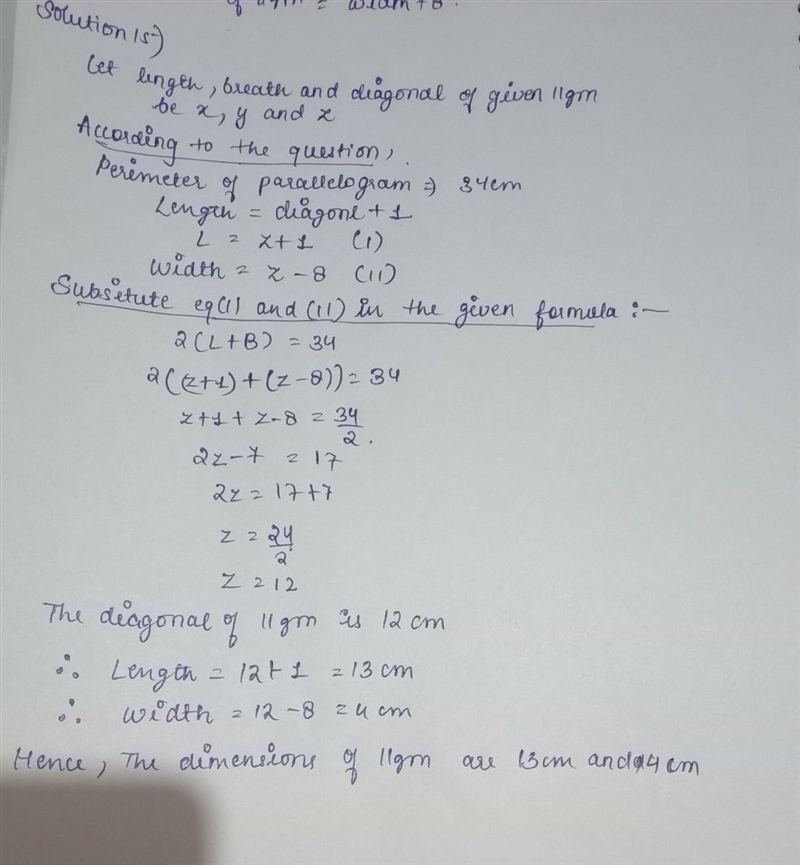 of llgm = width + 8.
Solution 15)
Let length, breath and diagonal of given llgm
be x, y and z
According to the question,
Perimeter of parallelogram => 34cm
Length = diagonl + 1
L = z+1 (I)
Width = z - 8 (II)
Subsitute eq(I) and (II) in the given formula :-
2(L+B) = 34
2((z+1)+(z-8)) = 34
z+1+z-8 = 34/2.
2z-7 = 17
2z = 17+7
z = 24/2
z = 12
The diagonal of llgm is 12 cm
∴ Length = 12+1 = 13 cm
∴ Width = 12-8 = 4 cm
Hence, The dimensions of llgm are 13cm and 4 cm